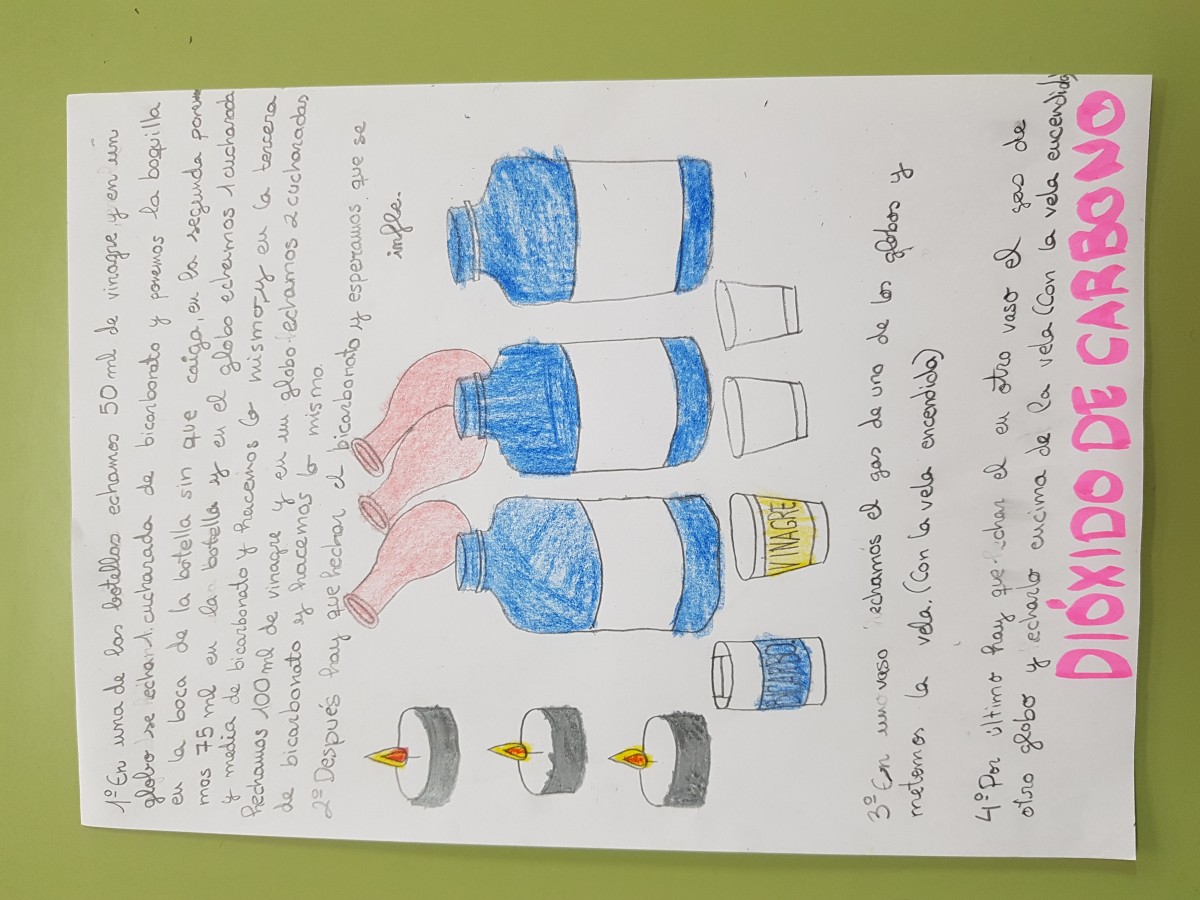 1º En una de las botellas echamos 50 ml de vinagre, y en un
globo se echan 1 cucharada de bicarbonato y ponemos la boquilla
en la boca de la botella sin que caiga, en la segunda pone
mos 75 ml en la botella y en el globo echamos 1 cucharada
y media de bicarbonato y hacemos lo mismo, y en la tercera
hechamos 100 ml de vinagre y en un globo echamos 2 cucharadas
de bicarbonato y hacemos lo mismo.
2º Después hay que hechar el bicarbonato y esperamos que se
infle.
BICARBO.
VINAGRE
3º En uno vaso echamos el gas de uno de los globos y
metemos la vela. (Con la vela encendida)
4º Por último hay que echar el en otro vaso el gas de
otro globo y echarlo encima de la vela (Con la vela encendida)
DIÓXIDO DE CARBONO